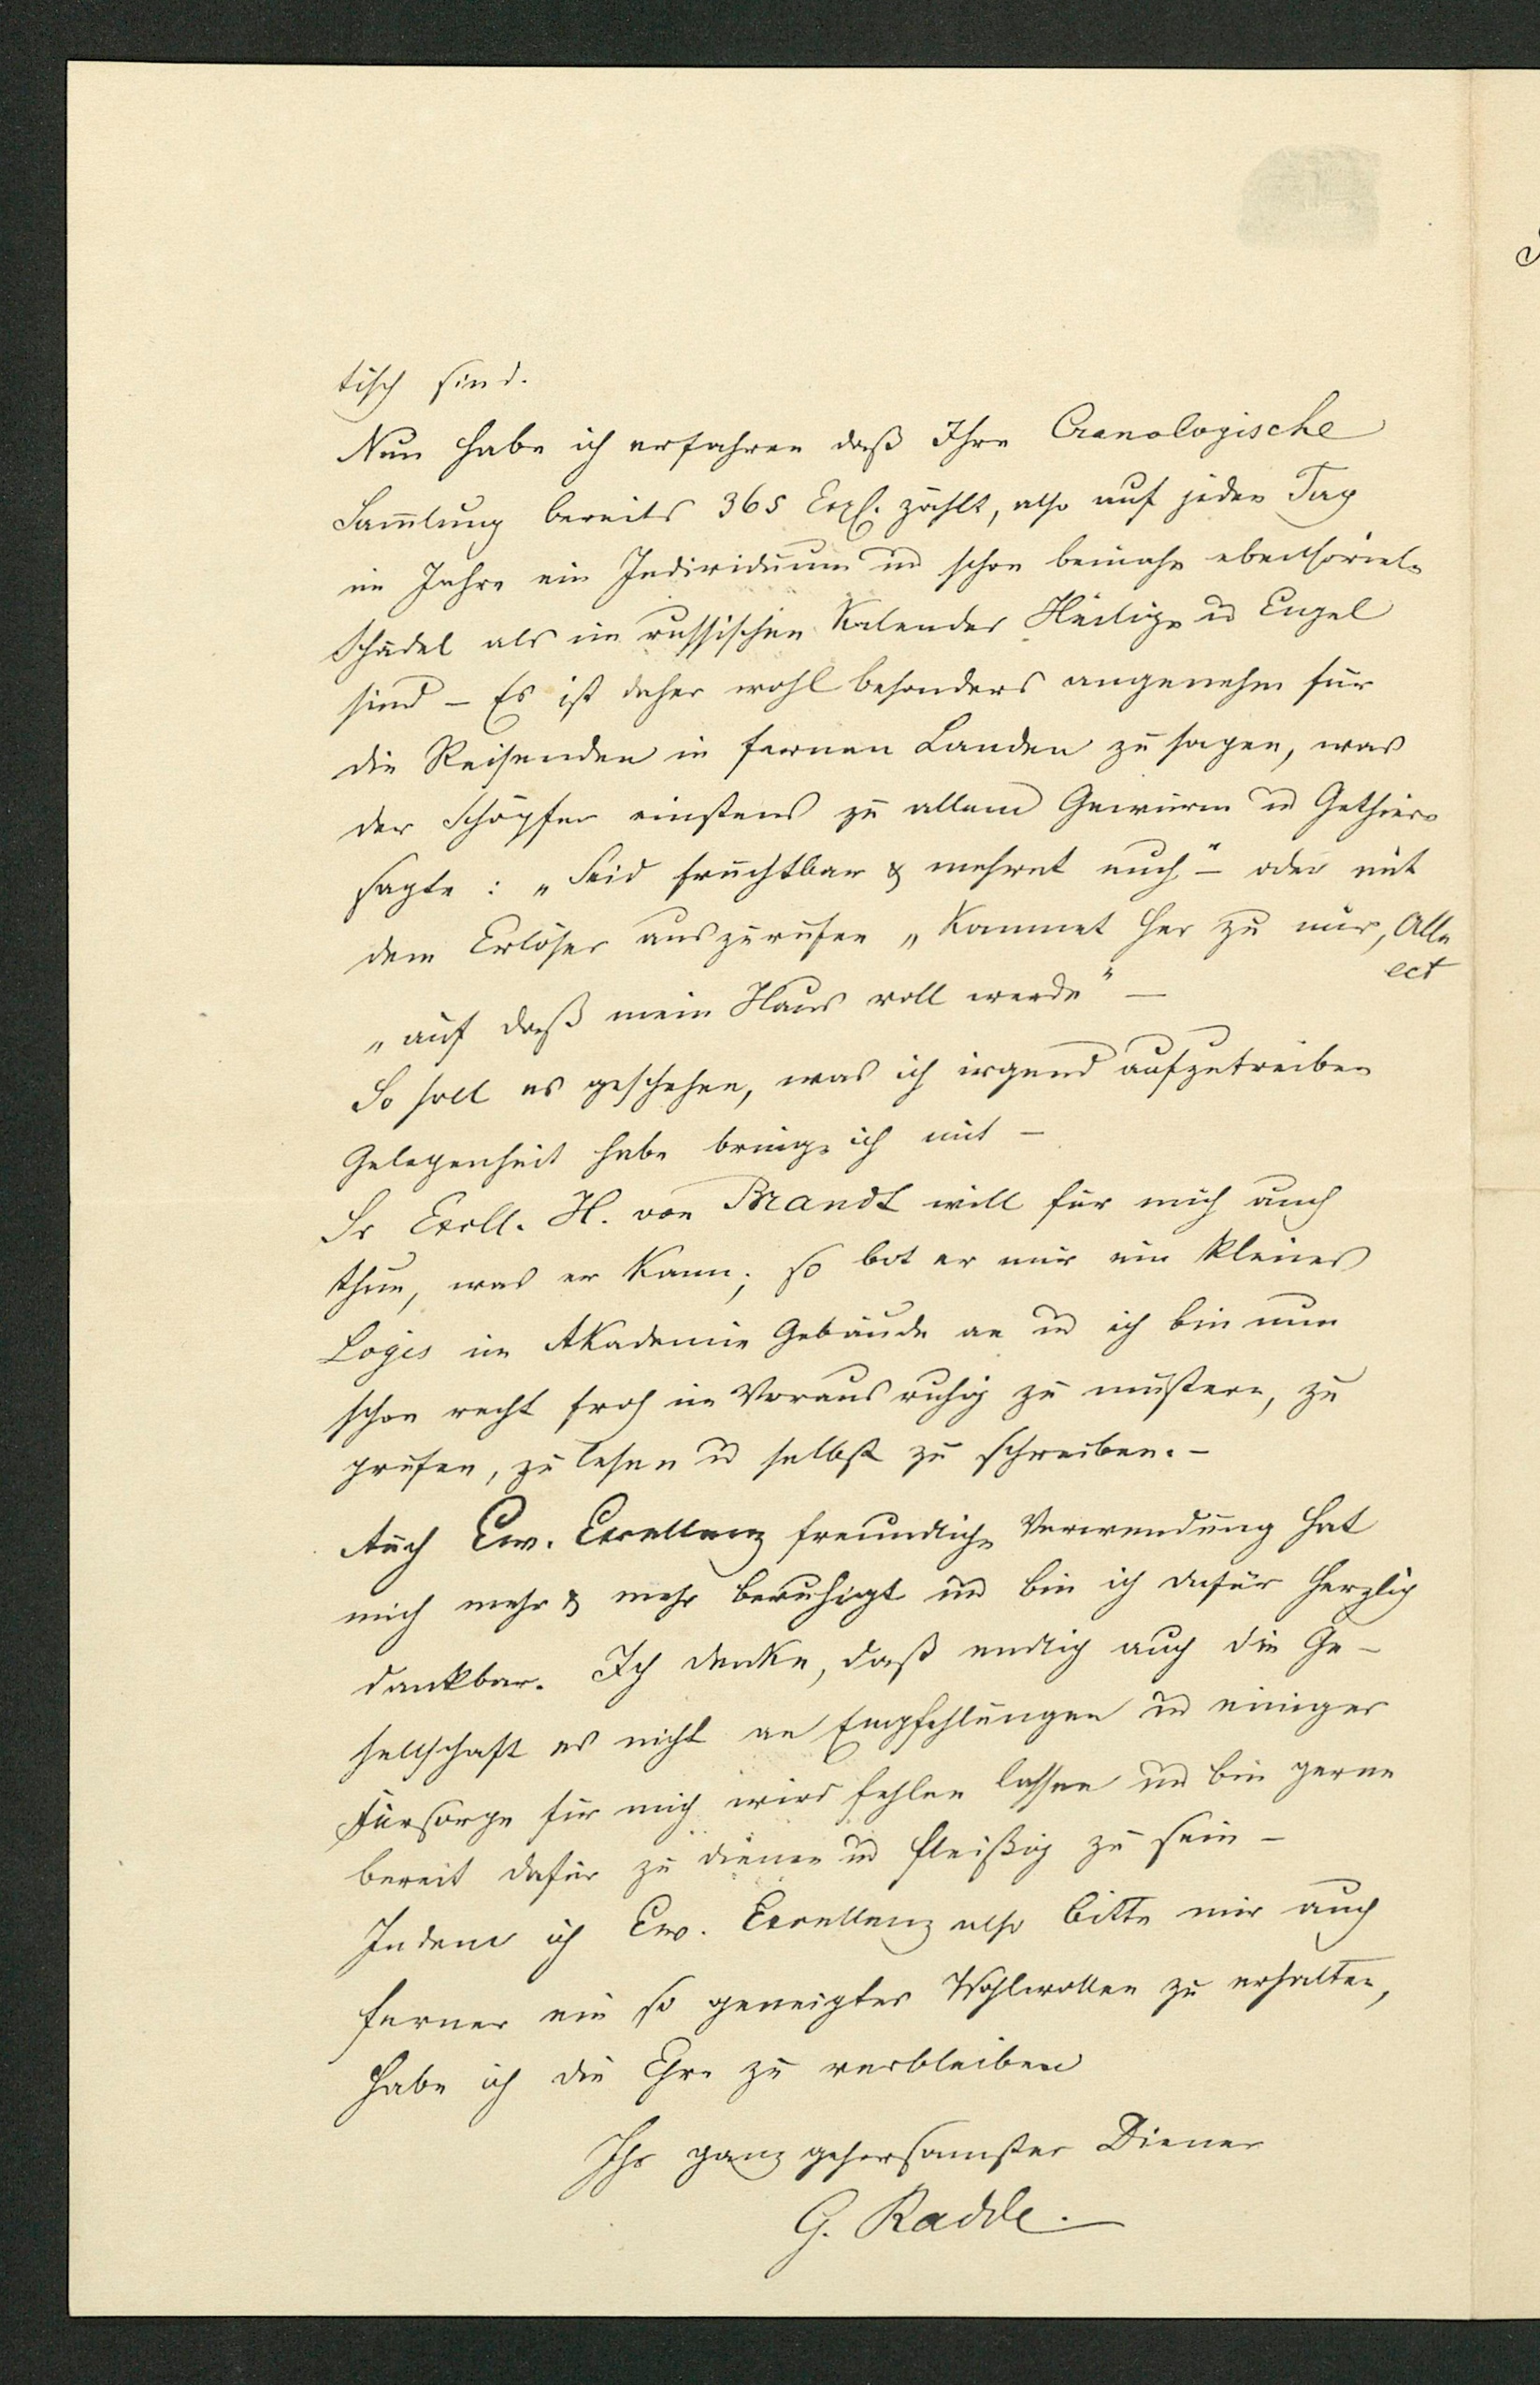 tisch sind.
Nun habe ich erfahren daß Ihre Cranologische
Samlung bereits 365 Expl. zählt, also auf jeden Tag
im Jahre ein Individuum und schon beinahe ebensoviele
Schädel als im russischen Kalender Heilige und Engel
sind – Es ist daher wohl besonders angenehm für
die Reisenden in fernen Landen zu sagen, was
der Schöpfer einstens zu allem Gewürm und Gethier
sagte: „Seid fruchtbar & mehret euch“ – oder mit
dem Erlöser auszurufen „Kommet her zu mir, Alle
ect
„auf daß mein Haus voll werde“ –
So soll es geschehen, was ich irgend aufzutreiben
Gelegenheit habe bringe ich mit –
Sr Excll. H. von Brandt will für mich auch
thun, was er kann; so bot er mir ein kleines
Logis im Akademie Gebäude an und ich bin nun
schon recht froh im Voraus ruhig zu mustern, zu
prüfen, zu lesen und selbst zu schreiben. –
Auch Ew. Excellenz freundliche Verwendung hat
mich mehr & mehr beruhigt und bin ich dafür herzlich
dankbar. Ich denke, daß endlich auch die Ge-
sellschaft es nicht an Empfehlungen und einiger
Fürsorge für mich wird fehlen lassen und bin gerne
bereit dafür zu dienen und fleißig zu sein –
Indem ich Ew. Excellenz also bitte mir auch
ferner ein so geneigtes Wohlwollen zu erhalten,
habe ich die Ehre zu verbleiben
Ihr ganz gehorsamster Diener
G. Radde.